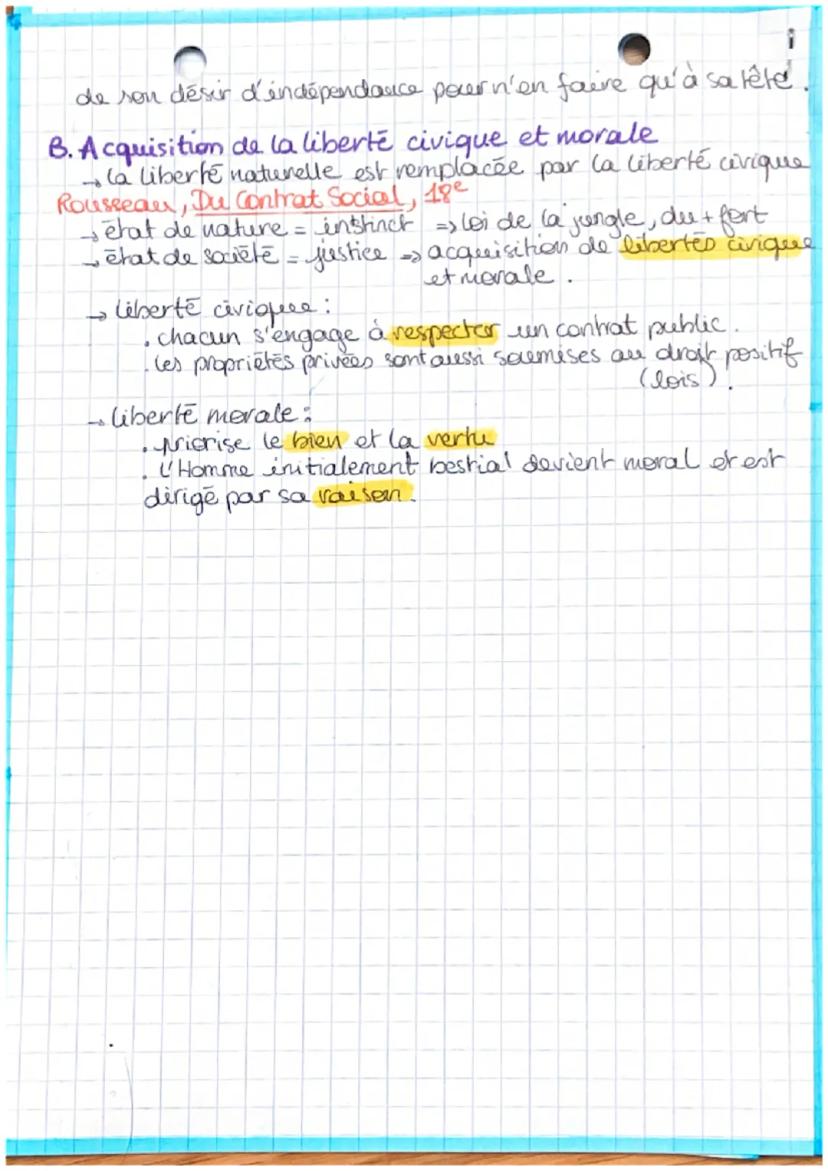 de son désir d'indépendance pour n'en faire qu'à sa tête.
B. Acquisition de la liberté civique et morale
→ la liberté naturelle est remplacée par la liberté civique
Rousseau, Du Contrat Social, 18e
→ état de nature = instinct => loi de la jungle, du + fort
→ état de société = justice => acquisition de libertés civique
et morale.
→ liberté civique :
. chacun s'engage à respecter un contrat public.
. les propriétés privées sont aussi soumises au droit positif
(lois).
→ liberté morale :
. priorise le bien et la vertu
. L'Homme initialement bestial devient moral et est
dirigé par sa raison.